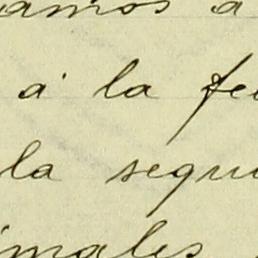 amos a
á la fe
la segu
imales